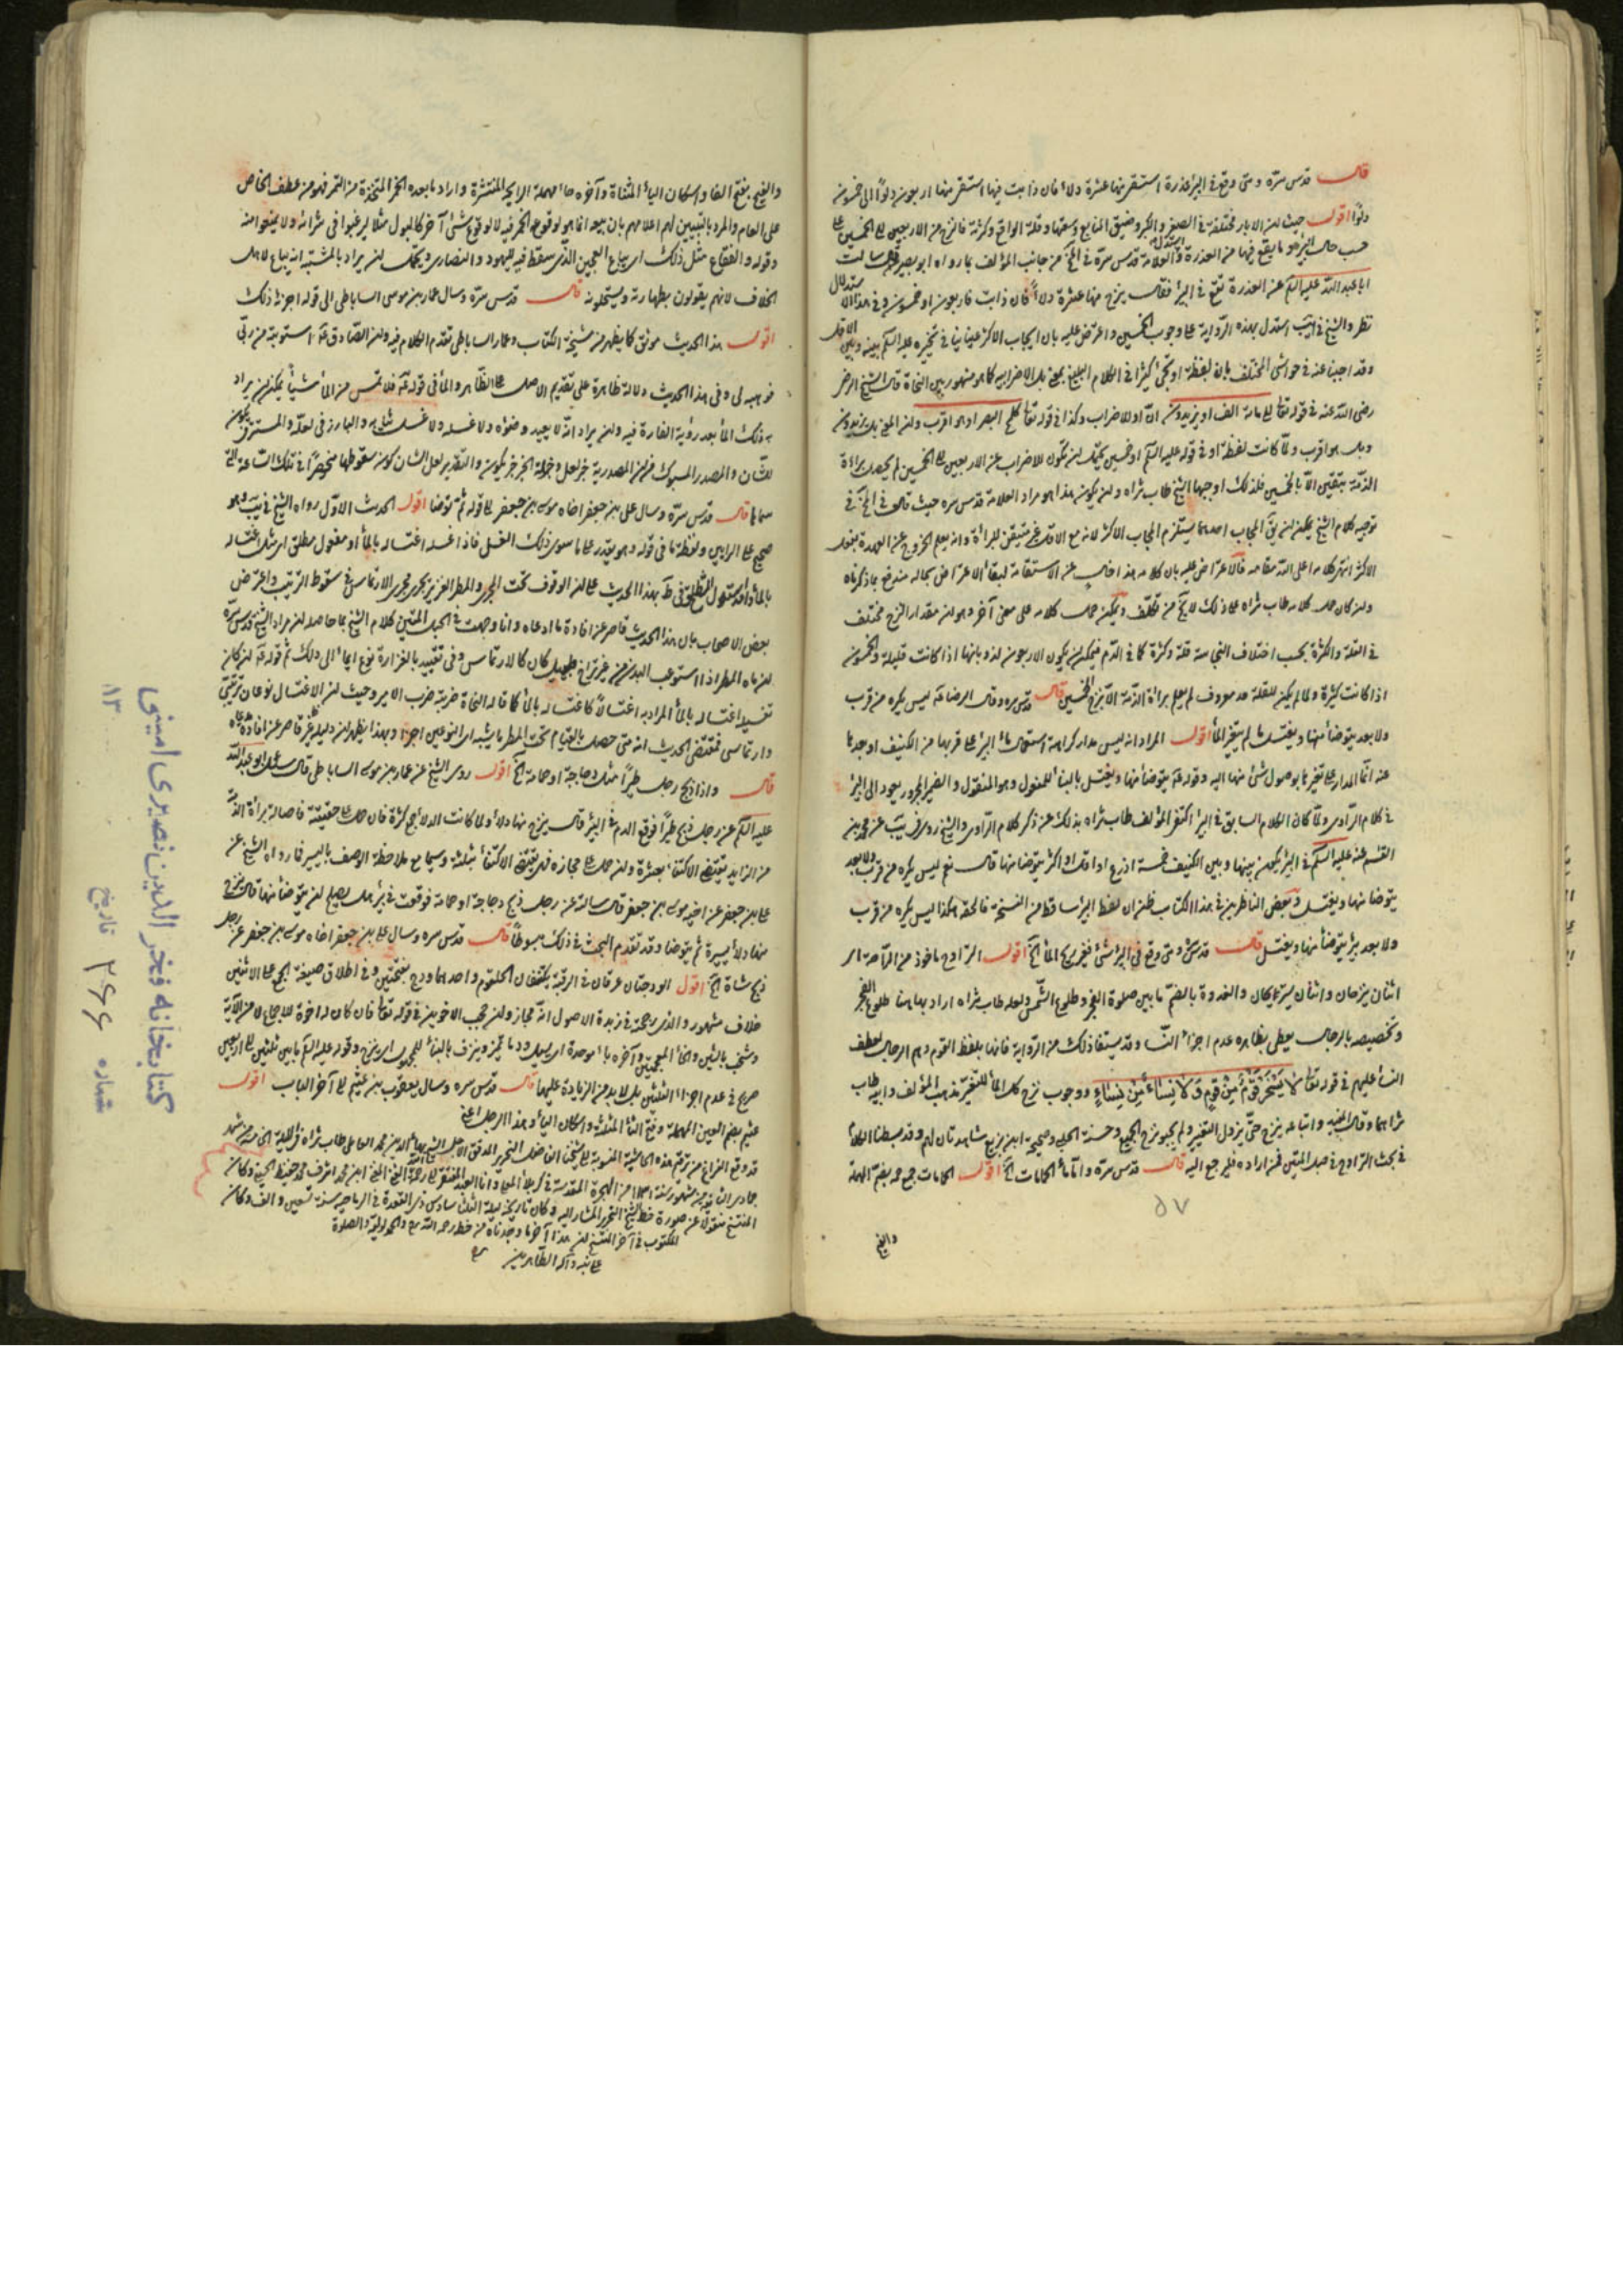 قال قدس سره ومتى وقع في البئر عذرة استقى منها عشرة دلاء فان ذابت فيها استقى منها اربعون دلوًا الى خمسون
دلوًا اقول حيث ان الابار مختلفة في الصغر والكبر وضيق المنابع وسعتها وقلة الواقع وكثرته فالنزح من الاربعين الى الخمسين على
حسب حال البئر وما يقع فيها من العذرة واستدل العلامة قدس سره في المخ من جانب المؤلف بما رواه ابو بصير قال سالت
ابا عبد الله عليه السلم عن العذرة تقع في البئر فقال ينزح منها عشرة دلاء فان ذابت فاربعون او خمسون وفي هذا الاستدلال
نظر والشيخ في يب استدل بهذه الرواية على وجوب الخمسين واعترض عليه بان ايجاب الاكثر عينا ينافي تخييره عليه السلم بينه وبين الاقل
وقد اجبنا عنه في حواشي المختلف بان لفظة او تجئ كثيرا في الكلام البليغ بمعنى بل الاضرابيه كما هو مشهور بين النحاة قال الشيخ الرضي
رضي الله عنه في قوله تعالى الى مائة الف او يزيدون ان او للاضراب وكذا في قوله تعالى كلمح البصر او هو اقرب وان المعنى بل يزيدون
وبل هو اقرب ولما كانت لفظة او في قوله عليه السلم او خمسين تحتمل ان تكون للاضراب عن الاربعين الى الخمسين لم يحصل براءة
الذمة بيقين الا بالخمسين فلذلك اوجبها الشيخ طاب ثراه وان يكون هذا هو مراد العلامة قدس سره حيث قال في المخ في
توجيه كلام الشيخ يمكن ان يق ايجاب احدهما يستلزم ايجاب الاكثر لانه مع الاقل غير متيقن للبراءة وانه يعلم الخروج عن العهدة بفعل
الاكثر انتهى كلامه اعلى الله مقامه فالاعتراض عليه بان كلامه هذا خال عن الاستقامة لبقاء الاعتراض بحاله مندفع بما ذكرناه
وان كان حمل كلامه طاب ثراه على ذلك لا يخ من تكلف ويمكن حمل كلامه على معنى آخر وهو ان مقدار النزح مختلف
في القلة والكثرة بحسب اختلاف النجاسة قلة وكثرة كما في الدم فيمكن ان يكون الاربعون لذوبانها اذا كانت قليلة والخمسون
اذا كانت كثيرة ولما لم يكن للقلة حد معروف لم يعلم براءة الذمة الا بنزح الخمسين قال قدس سره وقال الرضا ع ليس يكره من قرب
ولا بعد يتوضأ منها ويغتسل ما لم يتغير الماء اقول المراد انه ليس مدار كراهة استعمال ماء البئر على قربها من الكنيف او بعدها
عنه انما المدار على تغيرها بوصول شئ منها اليه وقوله ع يتوضأ منها ويغتسل بالبناء للمفعول وهو المنقول والضمير المجرور يعود الى البئر
في كلام الراوي ولما كان الكلام السابق في البئر اكتفى المؤلف طاب ثراه بذلك عن ذكر كلام الراوي والشيخ روى في يب عن محمد بن
القسم عنه عليه السلم في البئر يكون بينها وبين الكنيف خمسة اذرع او اقل او اكثر يتوضأ منها قال نعم ليس يكره من قرب ولا بعد
يتوضأ منها ويغتسل وبعض الناظرين في هذا الكتاب ظن ان لفظ البئر ساقط من النسخة فالحقه هكذا ليس يكره من قرب
ولا بعد بئر يتوضأ منها ويغتسل قال قدس سره ومتى وقع في البئر شئ فغير ريح الماء الخ اقول التراوح ماخوذ من الراحة اى
اثنان ينزحان واثنان يستريحان والغدوة بالضم ما بين صلوة الفجر وطلوع الشمس ولعله طاب ثراه اراد بها هنا طلوع الفجر
وتخصيصه بالرجال يعطى بظاهره عدم اجزاء النساء وقد يستفاد ذلك من الرواية فانها بلفظ القوم وهم الرجال لعطف
النساء عليهم في قوله تعالى لا يَسْخَرْ قَوْمٌ مِنْ قَوْمٍ وَلا نِساءٌ مِنْ نِساءٍ ووجوب نزح كل الماء للتغير مذهب المؤلف وابيه طاب
ثراهما وقال المفيد واتباعه ينزح حتى يزول التغيير ولم يجبو نزح الجميع وحسنة الحلبي وصحيحة ابن بزيع شاهدتان لهم وقد بسطنا الكلام
في بحث التراوح في حبل المتين فمن اراده فليرجع اليه قال قدس سره واما ماء الحمامات الخ اقول الحمامات جمع حمه بفتح المهملة
٥٧
والفيح
والفيح بفتح الفا واسكان الياء المثناة وآخره حاء مهملة الرايحة المنتشرة واراد بما بعده الخمر المتخذة من التمر فهو من عطف الخاص
على العام والمراد بالتبيين لهم اعلامهم بان بيعه انما هو لوقوع الخمر فيه لا لوقوع شئ آخر كالبول مثلا ليرغبوا في شرائه ولا يمتنعوا منه
وقوله والفقاع مثل ذلك اى يباع العجين الذى سقط فيه لليهود والنصارى ويحتمل ان يراد بالمشتبه انه يباع لاهل
الخلاف لانهم يقولون بطهارته ويستحلونه قال قدس سره وسال عمار بن موسى الساباطى الى قوله اجزئه ذلك
اقول هذا الحديث موثق كما يظهر من مشيخة الكتاب وعمار الساباطى تقدم الكلام فيه وان الصادق ع استوهبه من ربى
فوهبه لى وفى هذا الحديث دلالة ظاهرة على تقديم الاصل على الظاهر والماء فى قوله ع فلا تمس من الماء شيئًا يمكن ان يراد
به ذلك الماء بعد رؤية الفارة فيه وان يراد انه لا يعيد وضوءه ولا غسله ولا غسل ثيابه والبارز فى لعله والمستتر فى يكون
للشان والمصدر المسبوك من ان المصدرية خبر لعل وجملة الخبر خبر يكون والتقدير لعل الشان كون سقوطها منحصرًا فى تلك الساعة التى
رآها قال قدس سره وسال على بن جعفر اخاه موسى بن جعفر الى قوله ثم توضا اقول الحديث الاول رواه الشيخ فى يب وهو
صحيح على الرايين ولفظة ما فى قوله وهو يقدر على ما سوى ذلك الغسل فاذا غسله اغتساله بالماء او مفعول مطلق اى مثل اغتساله
بالماء واستدل الشيخ فى ط بهذا الحديث على ان الوقوف تحت المجرى والمطر الغزير يجرى مجرى الارتماس فى سقوط الترتيب واعترض
بعض الاصحاب بان هذا الحديث قاصر عن افادة ما ادعاه وانا وجهت فى الحبل المتين كلام الشيخ بما حاصله ان مراد الشيخ قدس سره
ان ماء المطر اذا استوعب البدن من غير تراخ طويل كان كالارتماس وفى تقييده بالغزارة نوع ايماء الى ذلك ثم قوله ع ان كان
تغسيله اغتساله بالماء المراد به اغتسالًا كاغتساله بالماء كما قاله النحاة ضربته ضرب الامير وحيث ان الاغتسال نوعان ترتيبى
وارتماسى فمقتضى الحديث انه متى حصل بالقيام تحت المطر ما يشبه اى النوعين اجزا وبهذا يظهر ان دليله غير قاصر عن افادة مدعاه
قال واذا ذبح رجل طيرًا مثل دجاجة او حمامة الخ اقول روى الشيخ عن عمار بن موسى الساباطى قال سئل ابو عبد الله
عليه السلم عن رجل ذبح طيرًا فوقع الدم فى البئر قال ينزح منها دلاء ولما كانت الدلاء جمع كثرة فان حمل على حقيقته فاصالة براءة الذمة
من الزايد يقتضى الاكتفاء بعشرة وان حمل على مجازه فهى تقتضى الاكتفاء بثلثة وسيما مع ملاحظة الوصف باليسير فما رواه الشيخ عن
على بن جعفر عن اخيه موسى بن جعفر قال سالته عن رجل ذبح دجاجة او حمامة فوقعت فى بئر هل يصلح ان يتوضأ منها قال ينزح
منها دلاء يسيرة ثم يتوضا وقد تقدم البحث فى ذلك مبسوطًا قال قدس سره وسال على بن جعفر اخاه موسى بن جعفر عن رجل
ذبح شاة الخ اقول الودجان عرقان فى الرقبة يكتنفان الحلقوم واحدهما ودج بفتحتين وفى اطلاق صيغة الجمع على الاثنين
خلاف مشهور والذى رجحته فى زبدة الاصول انه مجاز وان حجب الاخوين فى قوله تعالى فان كان له اخوة للاجماع لا من الآية
وشخب بالشين والخاء المعجمتين وآخره باء موحدة اى يسيل دما وينزف بالبناء للمجهول اى ينزح وقوله عليه السلم ما بين ثلثين الى اربعين
صريح فى عدم اجزاء الثلثين بل لا بد من الزيادة عليها قال قدس سره وسال يعقوب بن عثيم الى آخر الباب اقول
عثيم بضم العين المهملة وفتح الثاء المثلثة واسكان الياء وهذا الرجل
قد وقع الفراغ من ترقيم هذه الحاشية المنسوبة الى شيخنا افضل النحرير المدقق الاجل الشيخ بهاء الدين محمد العاملى طاب ثراه فى الليلة
المكتوب فى آخر النسخ ان هذا آخر ما وجدناه من خطه رحمه الله والحمد لوليه والصلوة
على نبيه وآله الطاهرين
كتابخانه فخر الدين نصيرى امينى
شماره ٢٦٦ تاريخ ١٣